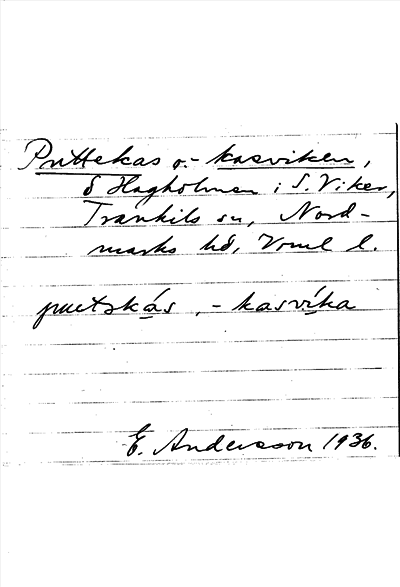 Puttekas o. -kasviken,
S Hagholmen i S. Viker,
Trankils sn, Nord-
marks hd, Vrml l.
puttəkás, -kasvíka
E. Andersson 1936.